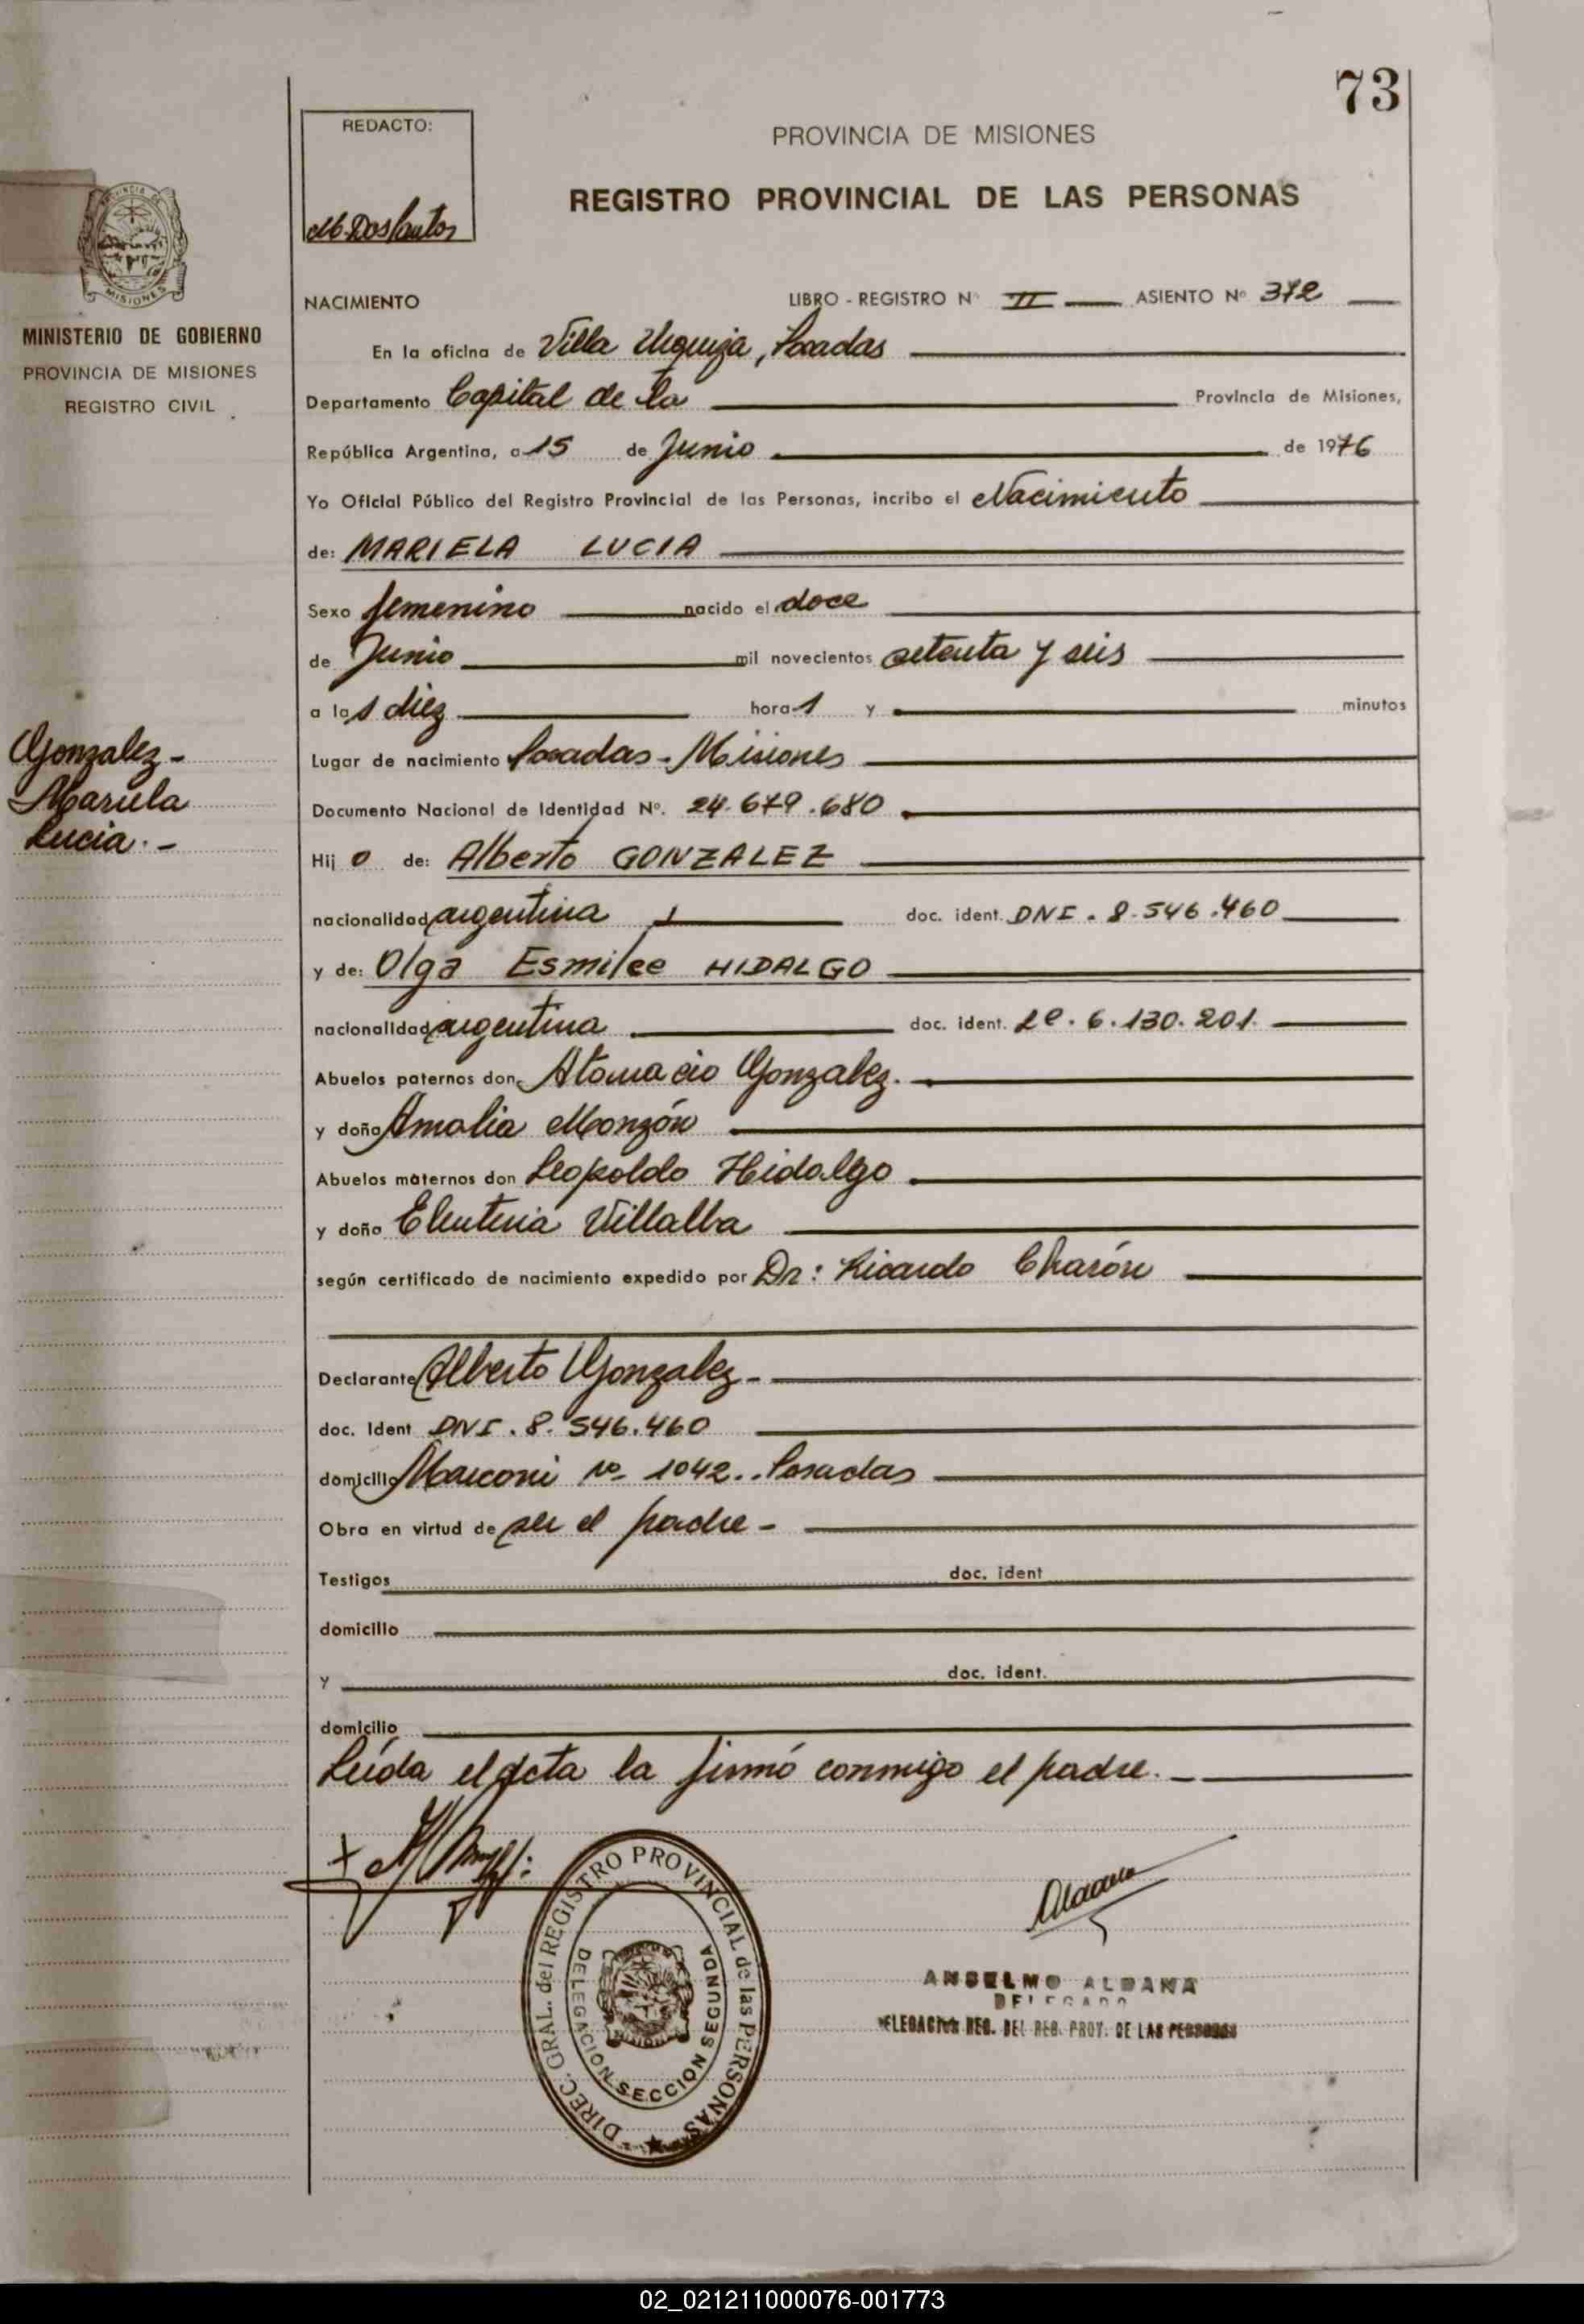 73
REDACTO:
M. Dos Santos
PROVINCIA DE MISIONES
REGISTRO PROVINCIAL DE LAS PERSONAS
PROVINCIA DE MISIONES
MINISTERIO DE GOBIERNO
PROVINCIA DE MISIONES
REGISTRO CIVIL
Gonzalez-
Mariela
Lucia.-
NACIMIENTO LIBRO - REGISTRO Nº II ASIENTO Nº 372
En la oficina de Villa Urquiza, Posadas
Departamento Capital de la Provincia de Misiones,
República Argentina, a 15 de Junio de 1976
Yo Oficial Público del Registro Provincial de las Personas, incribo el Nacimiento
de: MARIELA LUCIA
Sexo femenino nacido el doce
de Junio mil novecientos setenta y seis
a las diez horas y minutos
Lugar de nacimiento Posadas - Misiones
Documento Nacional de Identidad Nº. 24.679.680
Hijo de: Alberto GONZALEZ
nacionalidad argentina doc. ident. DNI. 8.546.460
y de: Olga Esmilce HIDALGO
nacionalidad argentina doc. ident. LC. 6.130.201.
Abuelos paternos don Atanacio Gonzalez.
y doña Amalia Monzón
Abuelos maternos don Leopoldo Hidalgo
y doña Eleuteria Villalba
según certificado de nacimiento expedido por Dr: Ricardo
Declarante Alberto Gonzalez-
doc. Ident DNI. 8.546.460
domicilio Marconi Nº 1042.. Posadas
Obra en virtud de ser el padre-
Testigos doc. ident
domicilio
y doc. ident.
domicilio
Leída el acta la firmó conmigo el padre.-
DIREC. GRAL. del REGISTRO PROVINCIAL de las PERSONAS
DELEGACION SECCION SEGUNDA
ANSELMO ALDANA
DELEGADO
DELEGACION REG. DEL REG. PROV. DE LAS PERSONAS
02_021211000076-001773